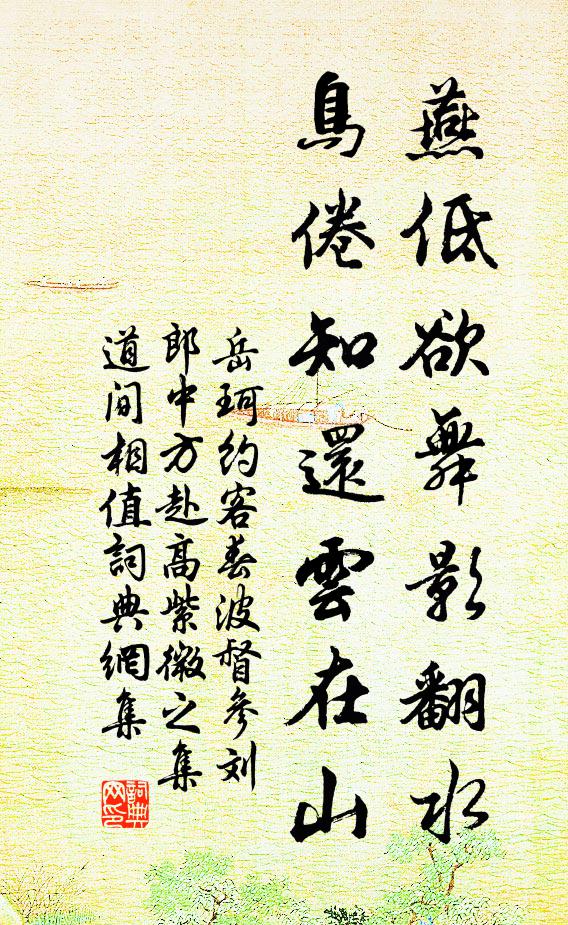 燕低欲舞影翻水
鳥倦知還雲在山
岳珂約客春波督參刘
郎中方赴高紫微之集
道间相值詞典網集
詞典网印